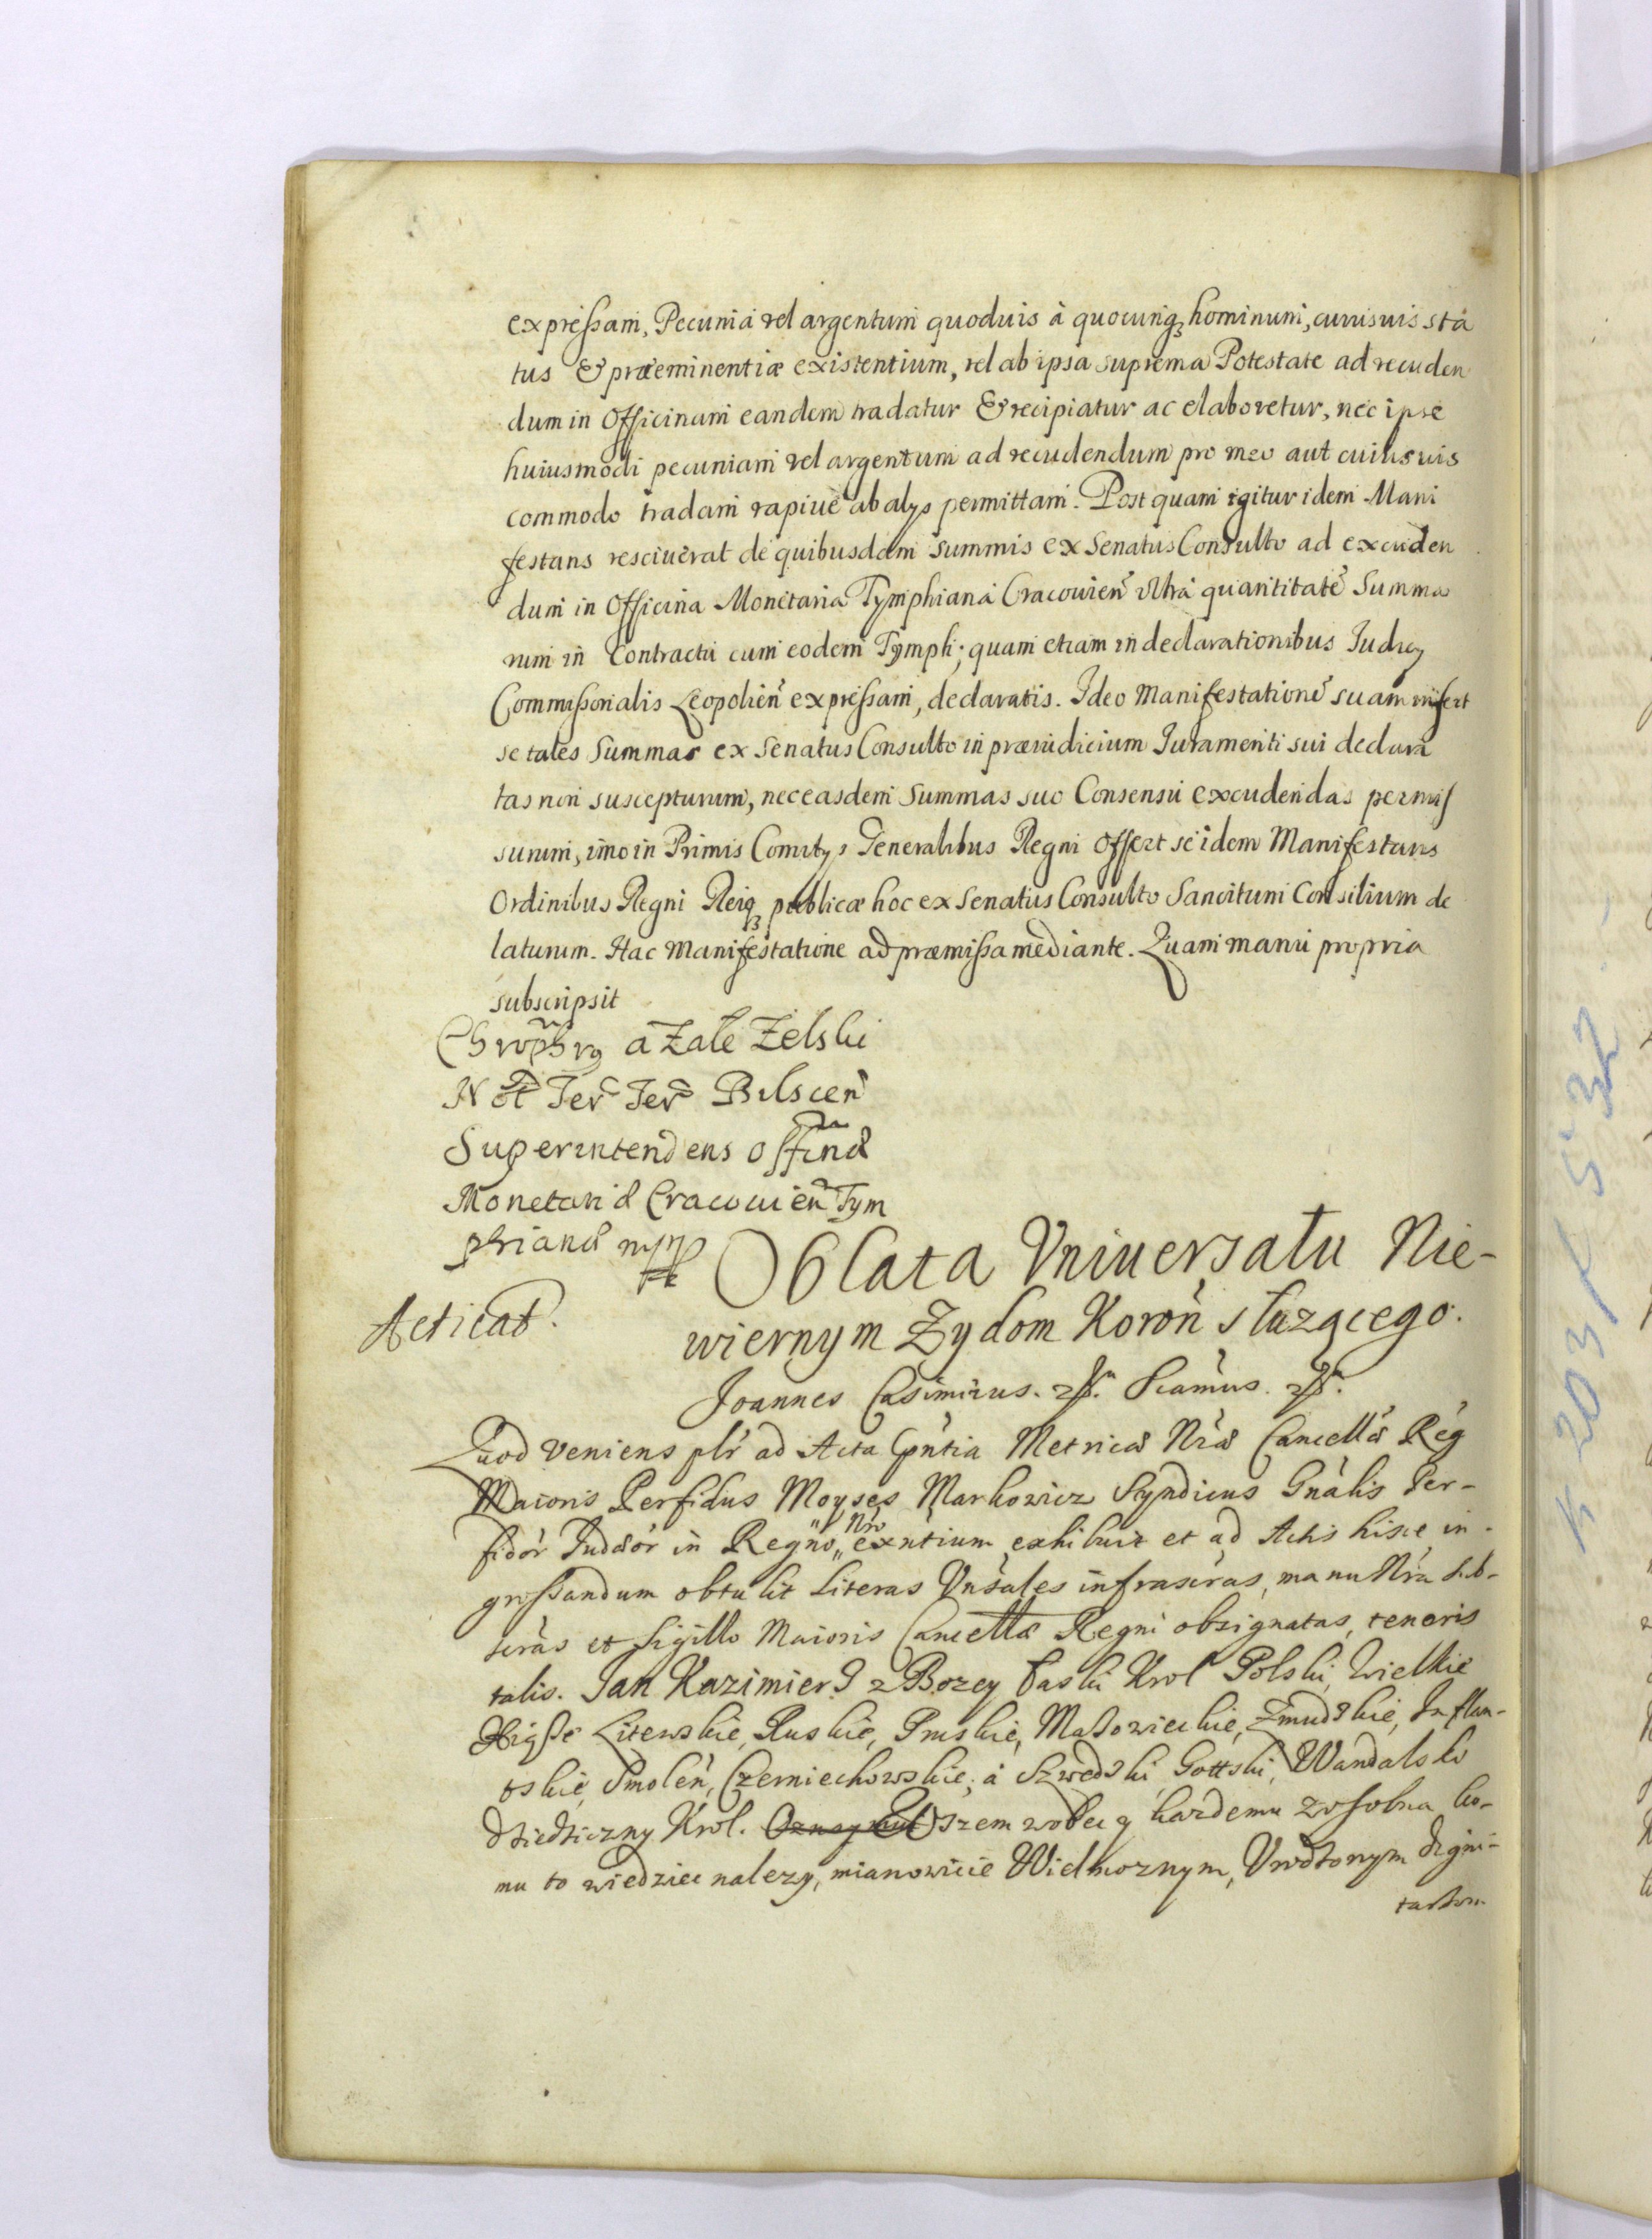 expressam, Pecunia vel argentum quoduis à quocunq; hominum, cuiusuis sta
tus & præeminentiæ existentium, vel ab ipsa suprema Potestate ad recuden
dum in Officinam eandem tradatur & recipiatur ac elaboretur, nec ipse
huiusmodi pecuniam vel argentum ad recudendum pro meo aut cuiusuis
commodo tradam rapiue ab alys permittam. Post quam igitur idem Mani
festans resciuerat de quibusdam Summis ex Senatus Consulto ad excuden
dum in Officina Monetaria Tymphiana Cracouien ultra quantitatē Summa
rum in Contractu cum eodem Tymph; quam etiam in declarationibus Judicy
Commissorialis Leopolien expressam, declaratis. Ideo Manifestationē suam infert
se tales Summas ex Senatus Consulto in præiudicium Juramenti sui declara
tas non suscepturum, nec easdem Summas suo Consensu excudendas permis
surum, imo in Primis Comitys Generalibus Regni offert se idem Manifestans
Ordinibus Regni Reiq; publicæ hoc ex Senatus Consulto Sancitum Consilium de
laturum. Hac Manifestatione ad præmissa mediante. Quam manu propria
subscripsit
a Zale Zelski
Not Ter Ter Bilscen
Superintendens Offinæ
Monetariæ Cracouien Tym
phianæ mpp
Oblata Vniuersału Nie-
Acticat.
wiernym Zydom Koron służącego.
Joannes Casimirus. Scamus.
Quod veniens plr ad Acta pntia Metricæ Nræ Cancellæ Reg
Maioris Perfidus Moyses Markowicz Syndicus Gnalis Per-
fidor Judæor in Regno Nro exntium exhibuit et ad Actis hisce in-
grossandum obtulit Literas Vnsales infrascras, manu Nra sub-
scras et Sigillo Maioris Cancellæ Regni obsignatas, tenoris
talis. Jan Kazimierz z Bozey łaski Krol Polski, Wielkie
Xiąsze Litewskie, Ruskie, Pruskie, Mazowieckie, Zmudzkie, Inflan-
tskie, Smolen, Czerniechowskie, a Szwedzki Gottski, Wandalski
dziedziczny Krol. Oznaymu Wszem wobec y kazdemu zosobna ko-
mu to wiedziec nalezy, mianowicie Wielmoznym, Vrodzonym Digni-
tarzom
K 203 / 532